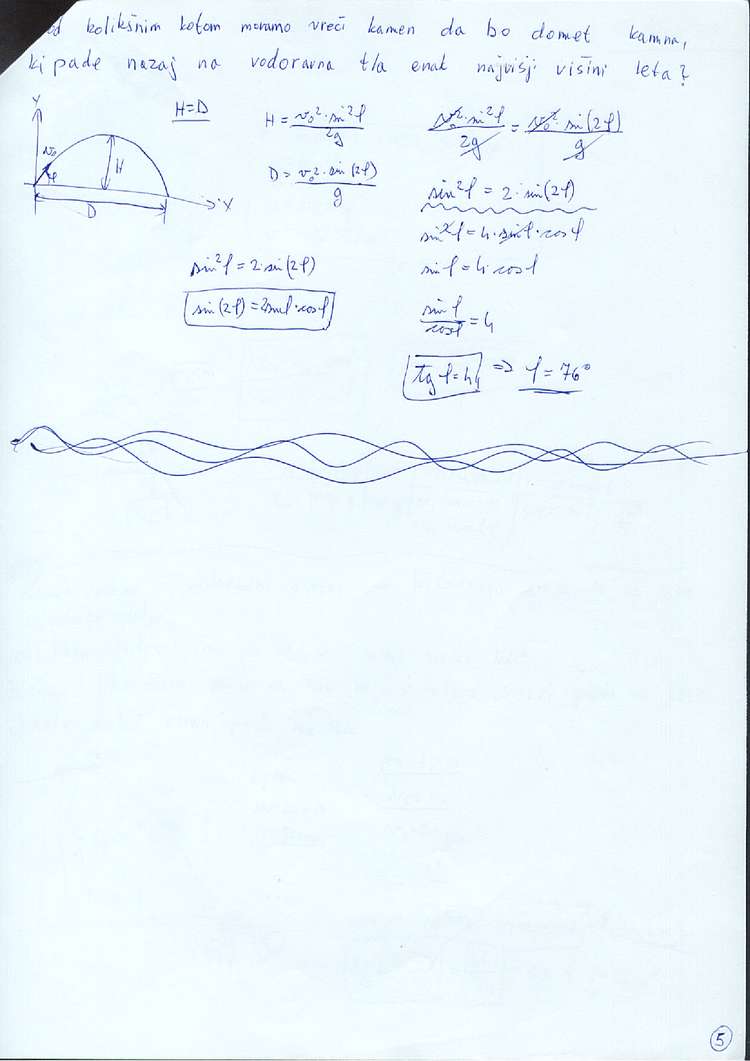 kolikšnim kotom moramo vreči kamen da bo domet kamna,
ki pade nazaj na vodoravna tla enak najvišji višini leta?
Y
v₀
φ
H
D
X
H=D
H = v₀²·sin²φ / 2g
D = v₀²·sin(2φ) / g
sin²φ = 2·sin(2φ)
sin(2φ) = 2sinφ·cosφ
v₀²·sin²φ / 2g = v₀²·sin(2φ) / g
sin²φ = 2·sin(2φ)
sin²φ = 4·sinφ·cosφ
sinφ = 4·cosφ
sinφ / cosφ = 4
tgφ = 4 ⇒ φ = 76°
5